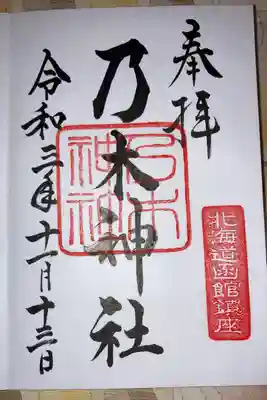 奉拝
乃木神社
乃木神社
北海道函館鎮座
令和三年十一月十三日